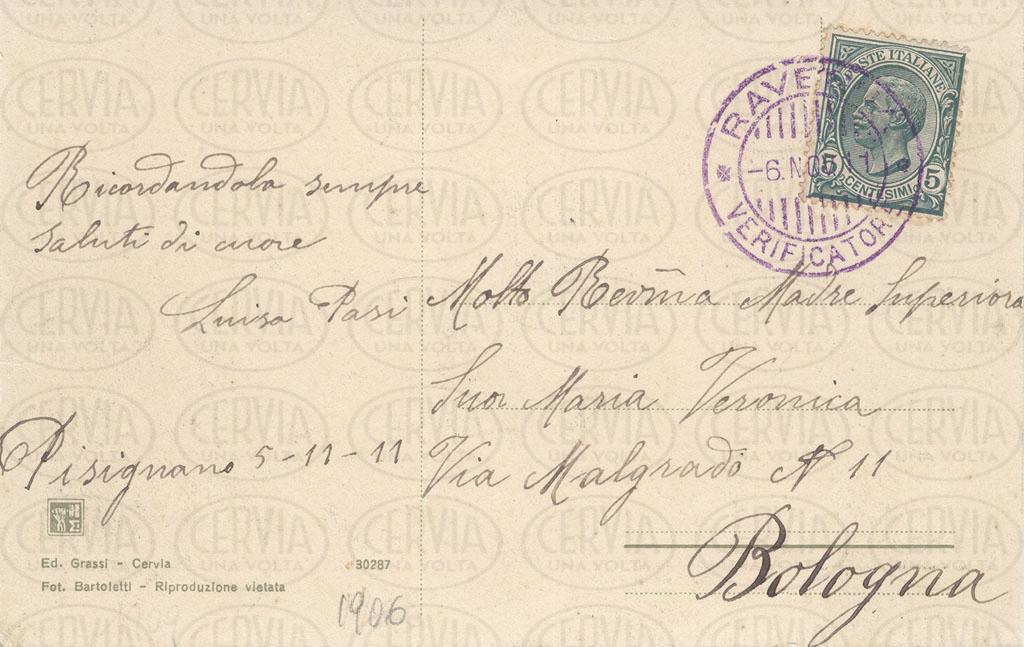 Ricordandola sempre
saluti di cuore
Luisa Pasi
Pisignano 5-11-11
Ed. Grassi - Cervia
30287
Fot. Bartoletti - Riproduzione vietata
1906
POSTE ITALIANE
5 CENTESIMI 5
-6.NO 11
VERIFICATOR
Molto Rev̄ma Madre Superiora
Suor Maria Veronica
Via Malgrado N 11
Bologna
CERVIA
UNA VOLTA